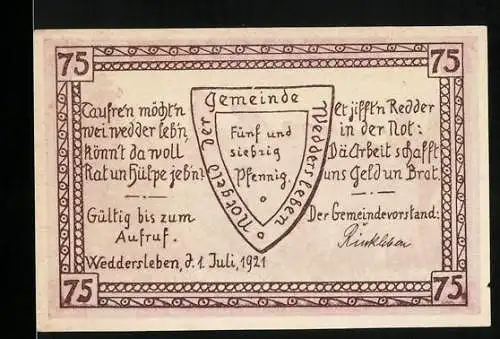 75 75
Taufre'n möcht'n
wei wedder leb'n,
könn't da woll
Rat un Hülpe jeb'n?
Gültig bis zum
Aufruf.
Weddersleben, d. 1. Juli, 1921
Notgeld der Gemeinde Weddersleben
Fünf und
siebzig
Pfennig.
Et jifft'n Redder
in der Not:
Dä Arbeit schafft
uns Geld un Brot.
Der Gemeindevorstand:
75 75